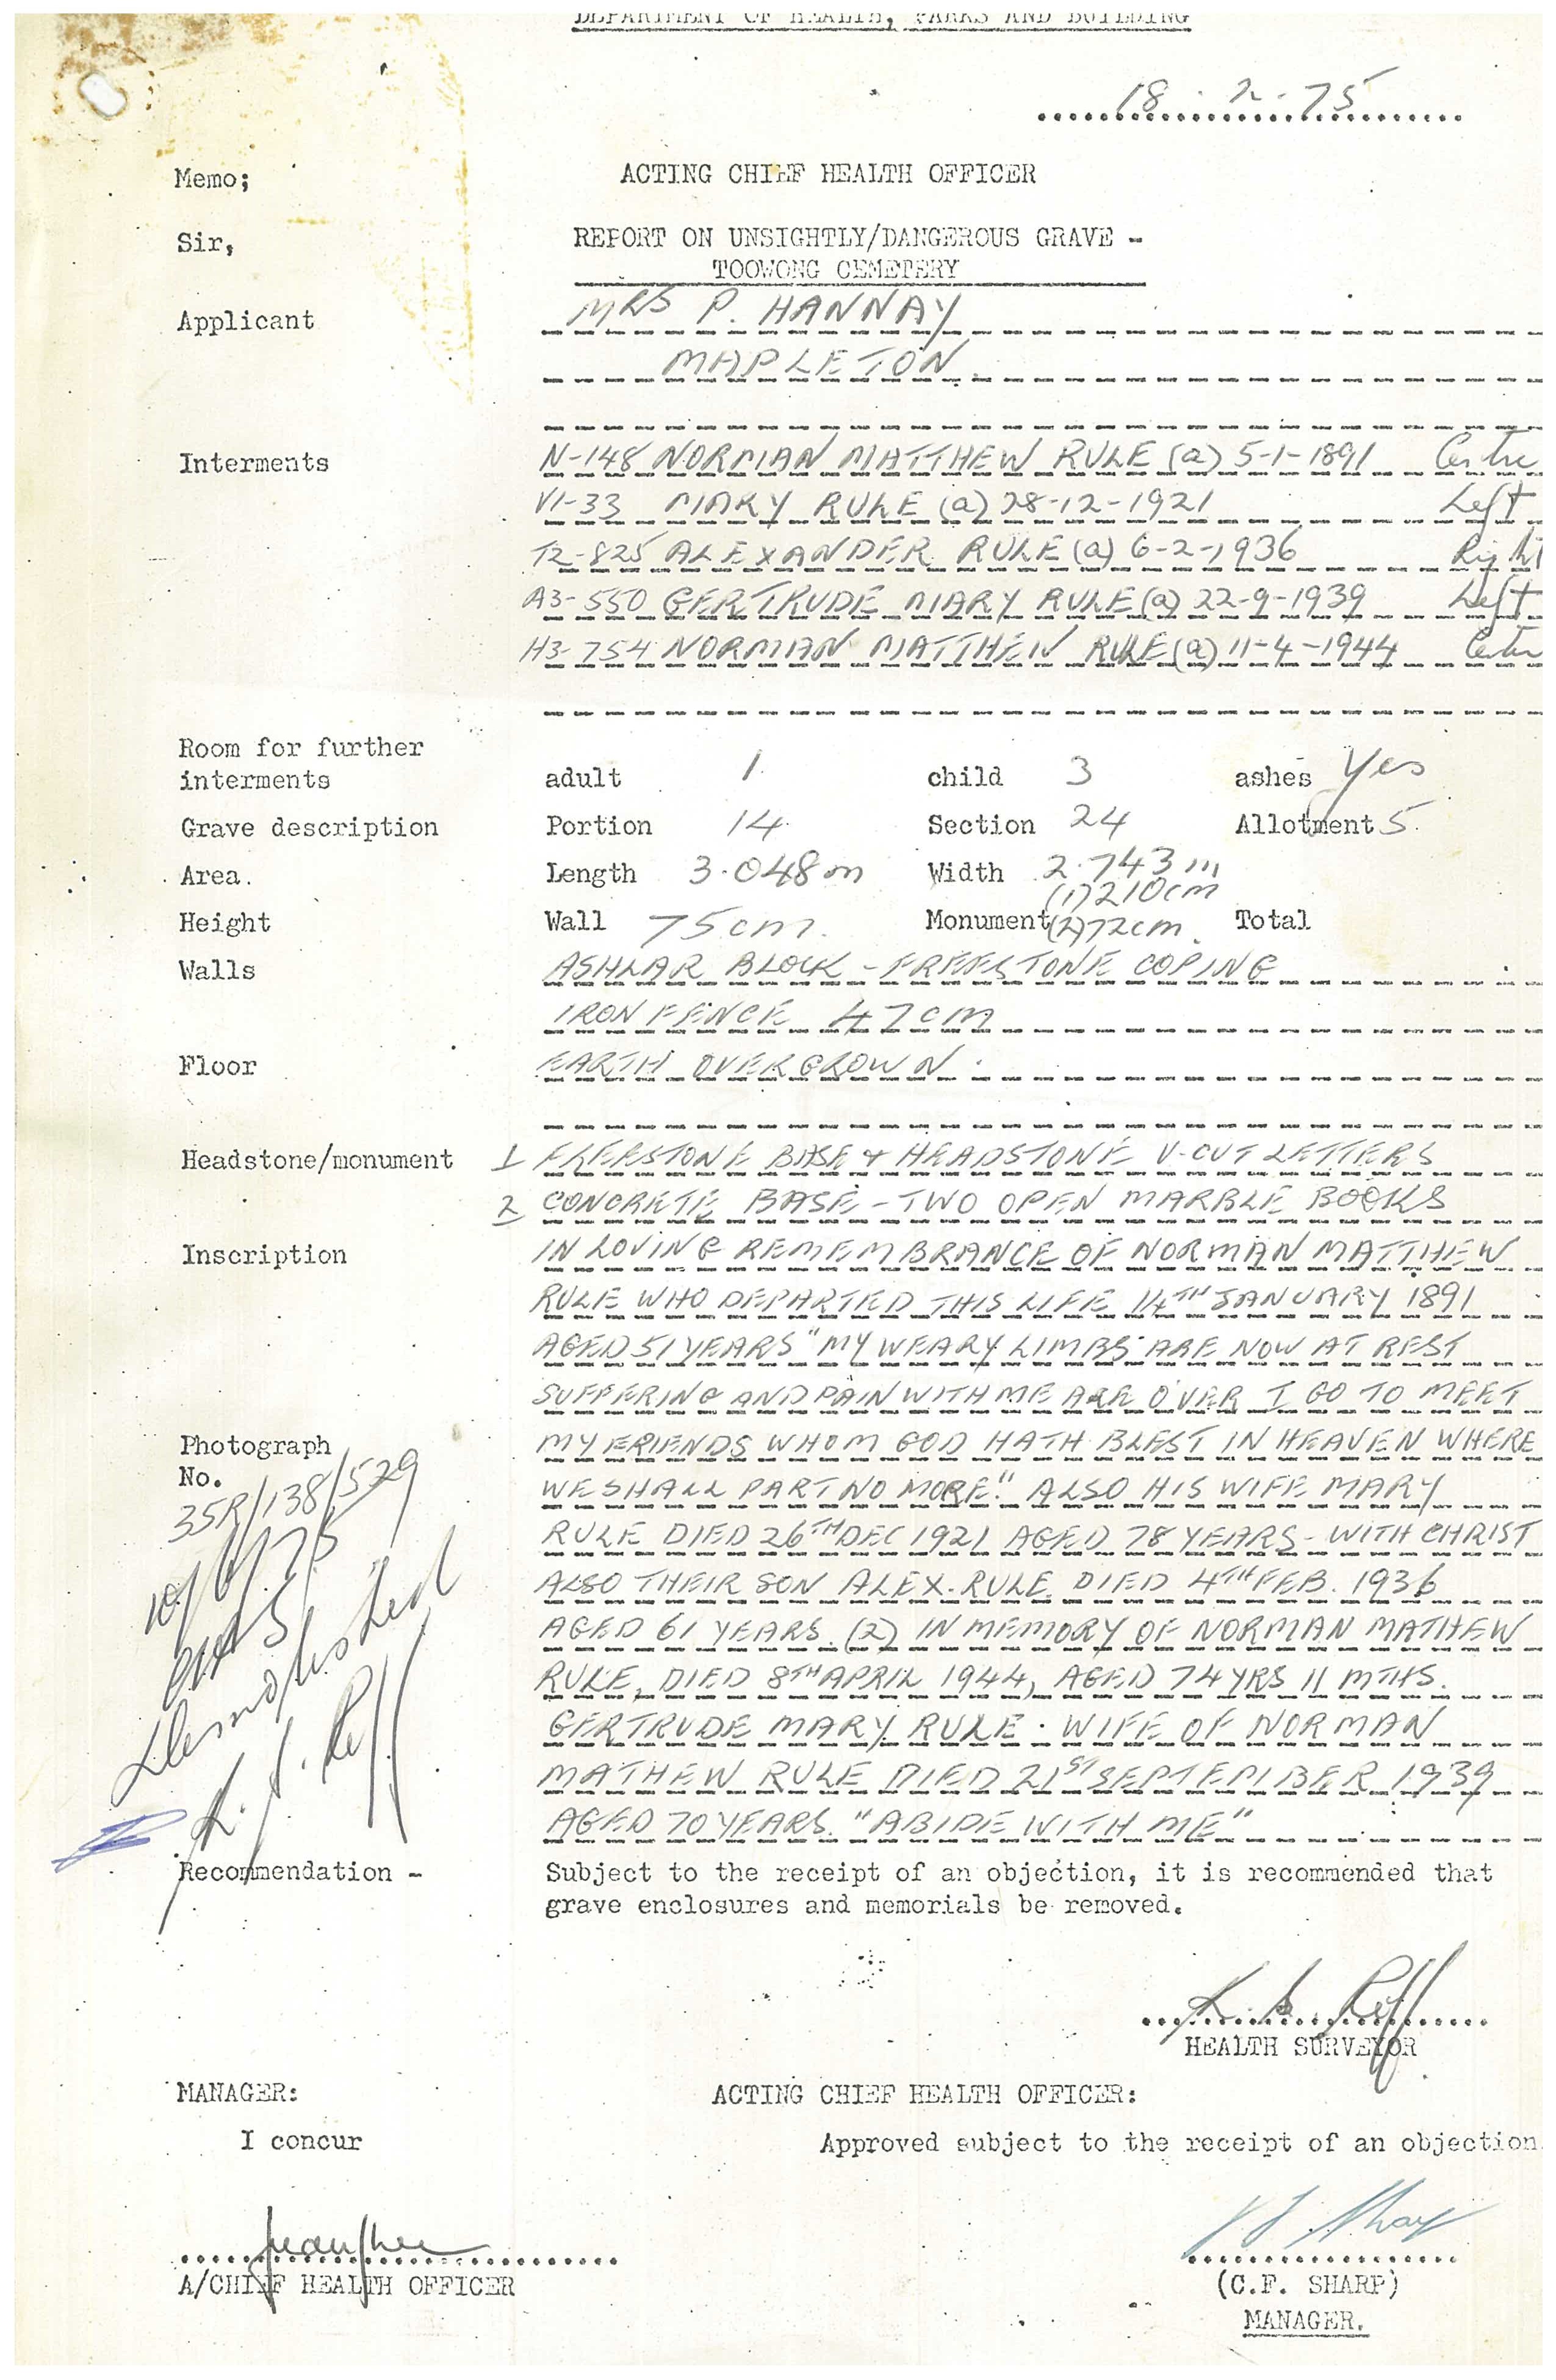 DEPARTMENT OF HEALTH, PARKS AND BUILDING
18-2-75
Memo; ACTING CHIEF HEALTH OFFICER
Sir, REPORT ON UNSIGHTLY/DANGEROUS GRAVE -
TOOWONG CEMETERY
Applicant MRS P. HANNAY
MAPLETON
Interments N-148 NORMAN MATTHEW RULE (a) 5-1-1891 Centre
V1-33 MARY RULE (a) 28-12-1921 Left
T2-825 ALEXANDER RULE (a) 6-2-1936 Right
A3-550 GERTRUDE MARY RULE (a) 22-9-1939 Left
H3-754 NORMAN MATTHEW RULE (a) 11-4-1944
Room for further
interments adult 1 child 3 ashes Yes
Grave description Portion 14 Section 24 Allotment 5.
Area. Length 3.048m Width 2.743m
(1) 210cm
Height Wall 75cm. Monument (2) 72cm. Total
Walls ASHLAR BLOCK - FREESTONE COPING
IRON FENCE 47cm
Floor EARTH OVERGROWN.
Headstone/monument 1 FREESTONE BASE & HEADSTONE V-CUT LETTERS
2 CONCRETE BASE - TWO OPEN MARBLE BOOKS
Inscription IN LOVING REMEMBRANCE OF NORMAN MATTHEW
RULE WHO DEPARTED THIS LIFE 14TH JANUARY 1891
AGED 51 YEARS "MY WEARY LIMBS ARE NOW AT REST
SUFFERING AND PAIN WITH ME ARE OVER I GO TO MEET
Photograph MY FRIENDS WHOM GOD HATH BLEST IN HEAVEN WHERE
No. WE SHALL PART NO MORE." ALSO HIS WIFE MARY
35R/138/529 RULE DIED 26TH DEC 1921 AGED 78 YEARS - WITH CHRIST
10/6/75 ALSO THEIR SON ALEX. RULE DIED 4TH FEB. 1936
AGED 61 YEARS. (2) IN MEMORY OF NORMAN MATHEW
RULE, DIED 8TH APRIL 1944, AGED 74 YRS 11 MTHS.
demolished GERTRUDE MARY RULE. WIFE OF NORMAN
MATHEW RULE DIED 21ST SEPTEMBER 1939
AGED 70 YEARS. "ABIDE WITH ME"
Recommendation - Subject to the receipt of an objection, it is recommended that
grave enclosures and memorials be removed.
HEALTH SURVEYOR
MANAGER: ACTING CHIEF HEALTH OFFICER:
I concur Approved subject to the receipt of an objection.
A/CHIEF HEALTH OFFICER (C.F. SHARP)
MANAGER.